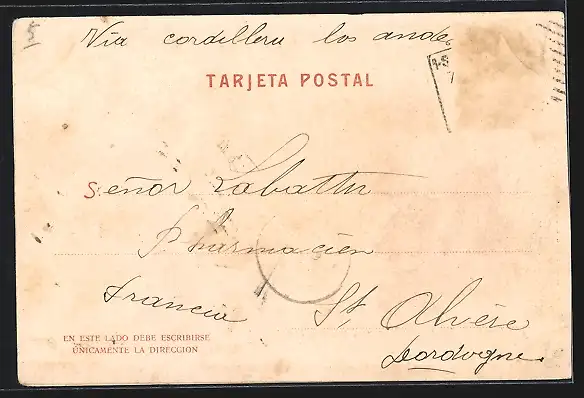 Via cordillera los andes
TARJETA POSTAL
Señor Labatthe
Pharmacien
Francia St. Alvère
Dordogne
EN ESTE LADO DEBE ESCRIBIRSE
ÚNICAMENTE LA DIRECCION